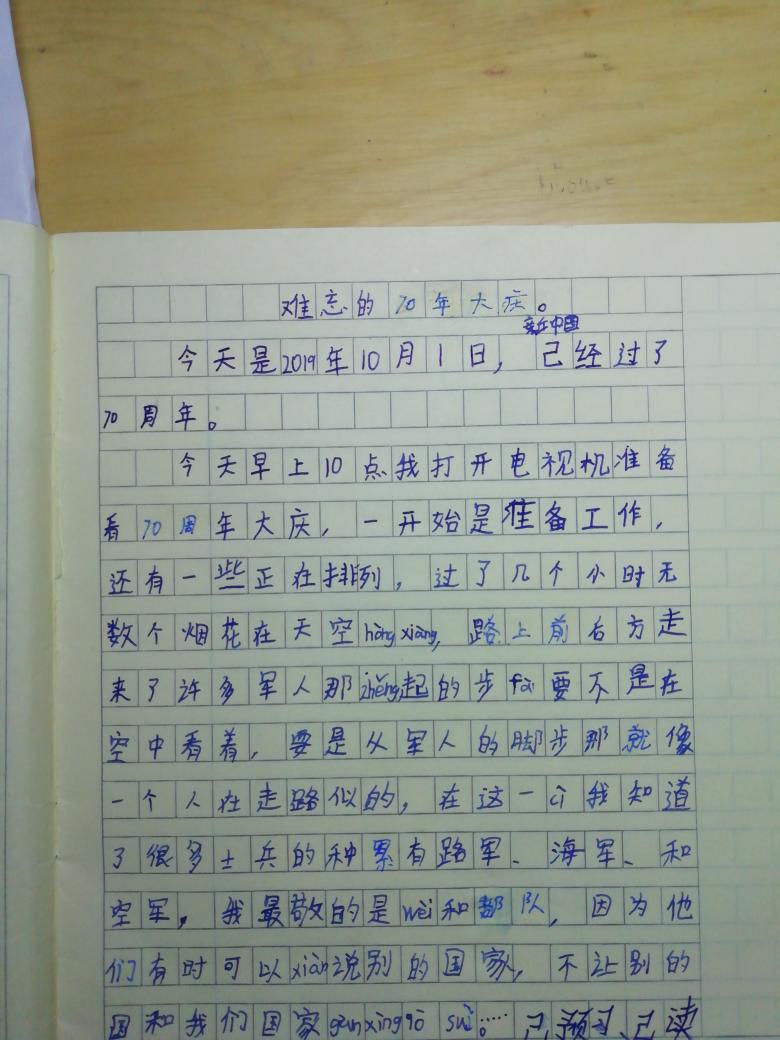 难忘的70年大庆。
今天是2019年10月1日，新中国已经过了
70周年。
今天早上10点我打开电视机准备
看70周年大庆，一开始是准备工作，
还有一些正在排列，过了几个小时无
数个烟花在天空hòngxiàng，路上前右方走
来了许多军人那zhěng起的步fá要不是在
空中看着，要是从军人的脚步那就像
一个人在走路似的，在这一cì我知道
了很多士兵的种累有路军、海军、和
空军，我最敬的是wéi和部队，因为他
们有时可以xiàn说别的国家，不让别的
国和我们国家
已预习、已读